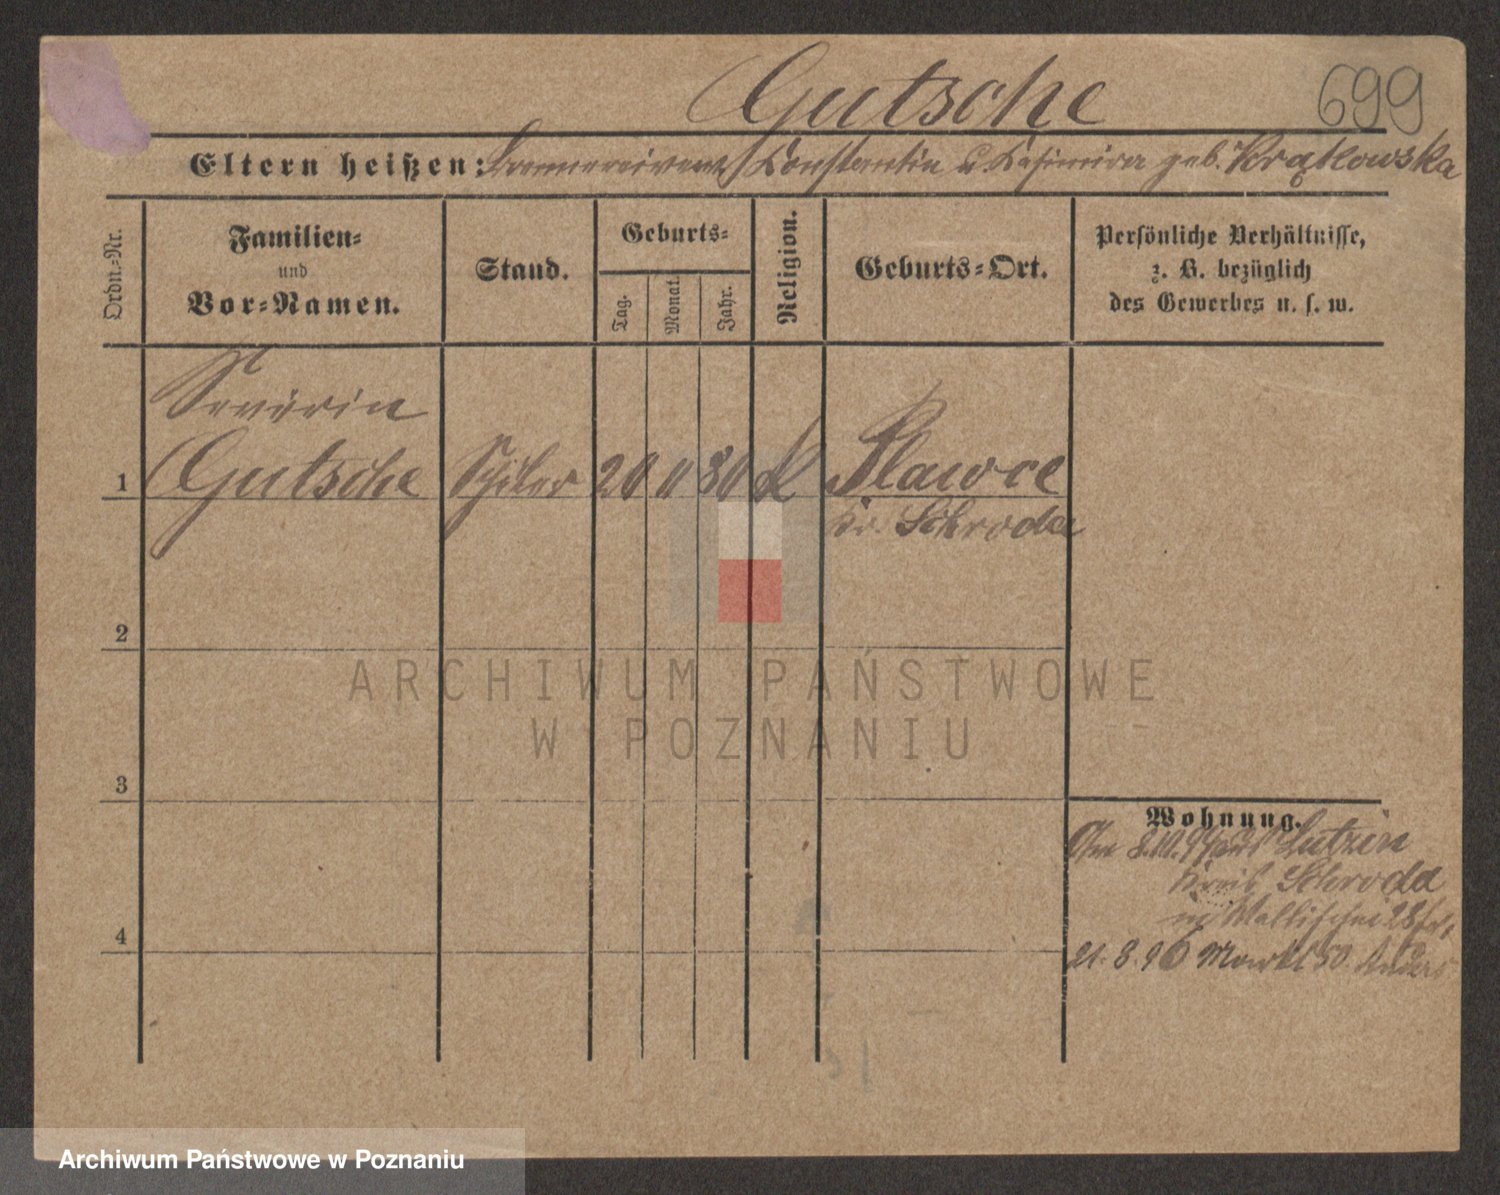 Gutsche 699
Eltern heißen: Brennereiverw. Konstantin u. Kasimira geb. Krąkowska
Ordn.-Nr.
Familien-
und
Vor-Namen.
Stand.
Geburts-
Tag.
Monat.
Jahr.
Religion.
Geburts-Ort.
Persönliche Verhältnisse,
z. B. bezüglich
des Gewerbes u. s. w.
Severin
1 Gutsche Schüler 20 11 80 k Plawce
Kr. Schroda
2
3
4
Wohnung.
8.10.94 aus
Kreis Schroda
Wallischei 28
21.8.96 Markt 50.
ARCHIWUM PAŃSTWOWE
W POZNANIU
Archiwum Państwowe w Poznaniu